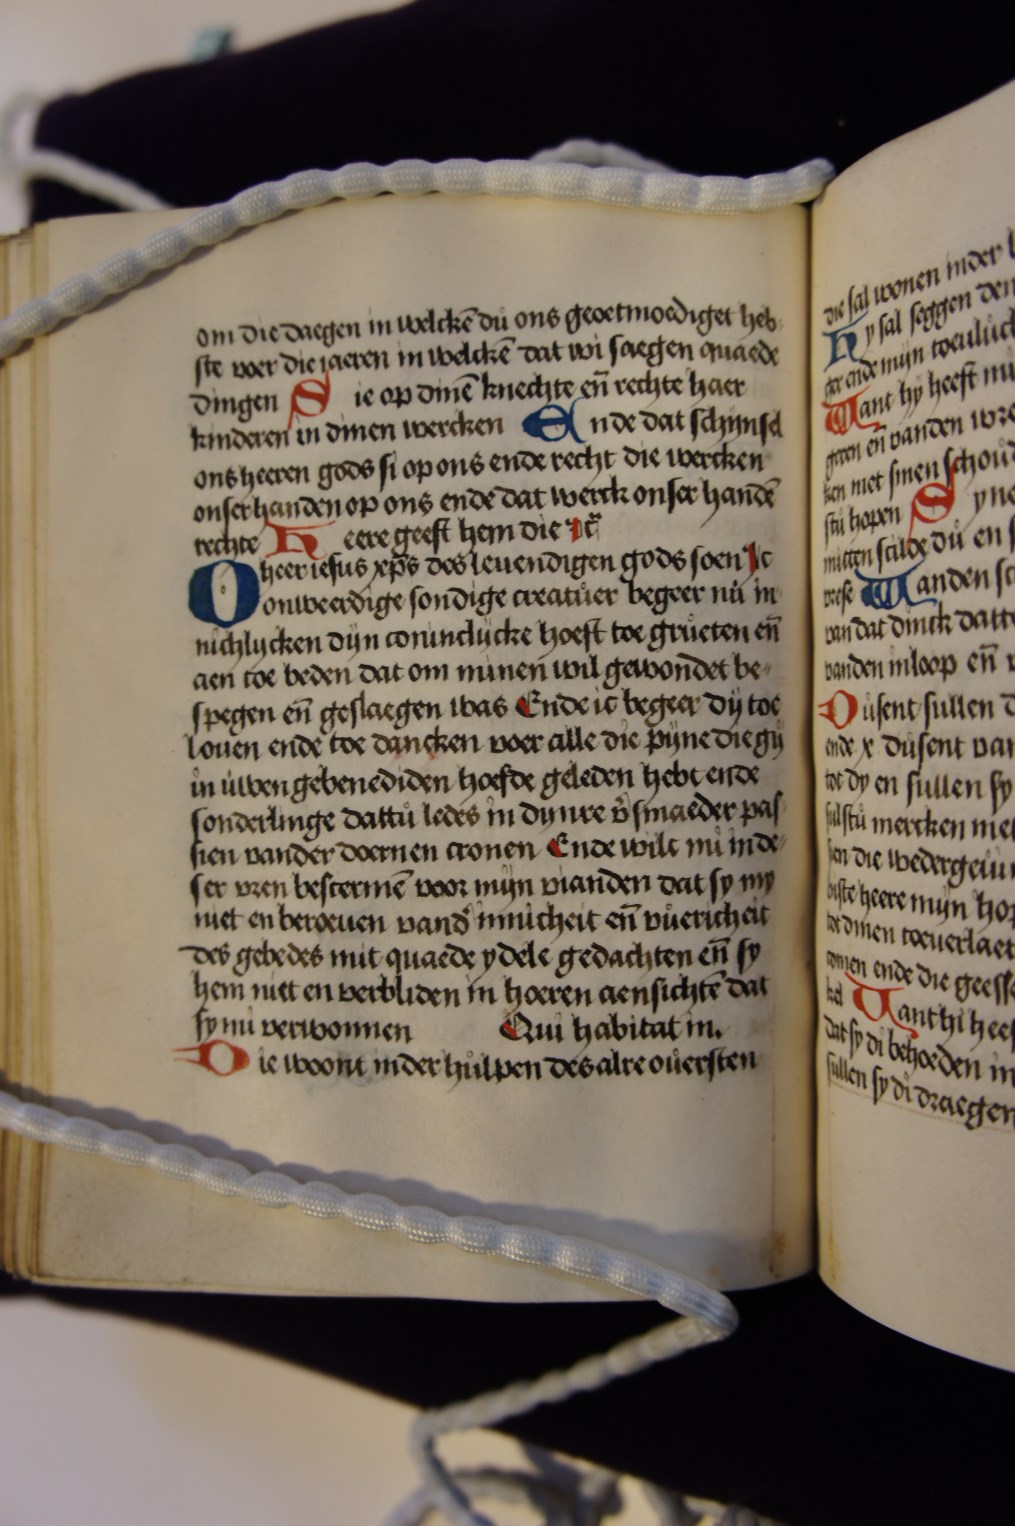 om die daegen in welckē du ons geoetmoediget heb
ste voer die jaeren in welckē dat wi saegen quaede
dingen Sie op dinē knechte en̄ rechte haer
kinderen in dinen wercken Ende dat schijnsel
ons heeren gods si op ons ende recht die wercken
onser handen op ons ende dat werck onser handē
rechte Heere geeft hem die
O heer iesus xp̄s des leuendigen gods soen Ic
onweerdige sondige creatuer begeer nu in
nichlycken dijn coninclijcke hoeft toe grueten en̄
aen toe beden dat om minen wil gewondet be
spegen en̄ geslaegen was Ende ic begeer dij toe
louen ende toe dancken voer alle die pijne die gij
in uwen gebenediden hoefde geleden hebt ende
sonderlinge dattu ledes in dynre v̄smaeder pas
sien vander doernen cronen Ende wilt mi in de
ser vren bescermē voor mijn vianden dat sy my
niet en beroeuen vand' innicheit en̄ vuericheit
des gebedes mit quaede ydele gedachten en̄ sy
hem niet en verbliden in hoeren aensichtē dat
sy mi verwonnen Qui habitat in.
Die woont inder hulpen des alre ouersten
die sal wonen inder
Hy sal seggen den
ger ende mijn toeuluch
Want hy heeft mi
geren en̄ vanden
ken met sinen schoud
stu hopen Syne
mitten scilde du en
vrese Vanden
van dat dinck datt
vanden inloop en̄
Dusent sullen
ende x dusent van
tot dy en sullen sy
sulstu mercken
sien die wedergeui
biste heere mijn hop
toe dinen toeuerlaet
comen ende die geess
kel Want hi heef
dat sy di behoeden in
sullen sy di draegen